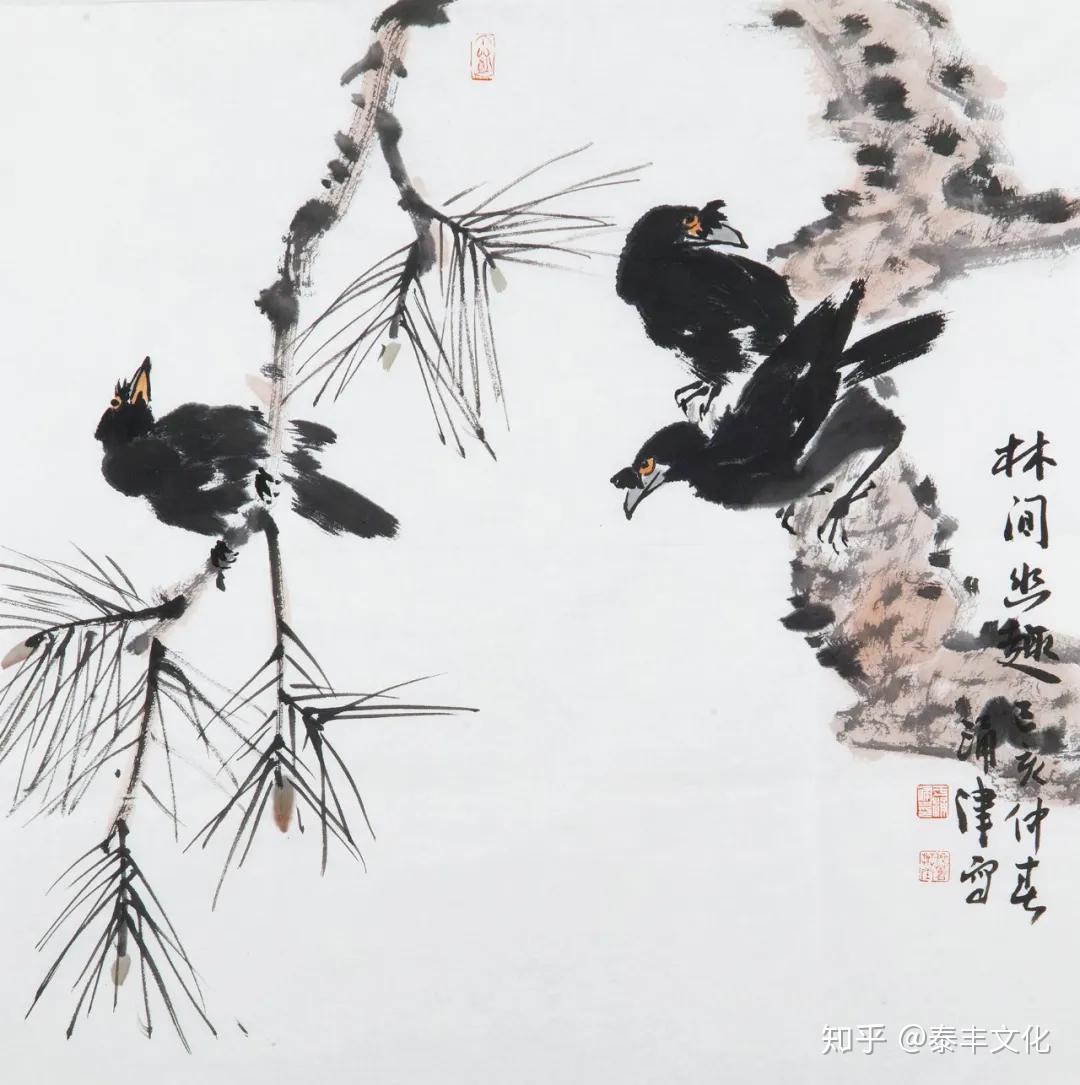 林间幽趣
己亥仲春
涌津写
知乎 @泰丰文化